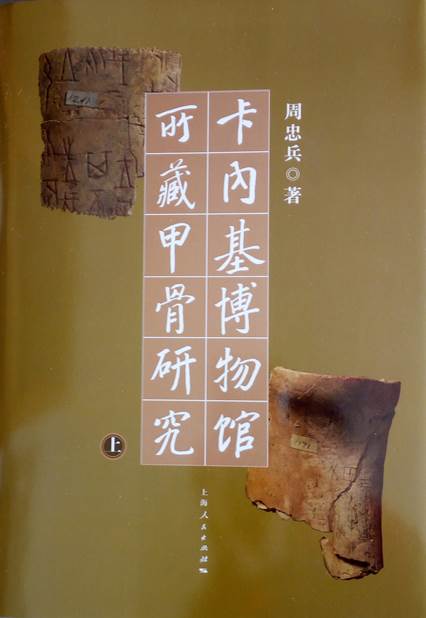 卡內基博物馆
所藏甲骨研究
上
周忠兵◎著
上海人民出版社